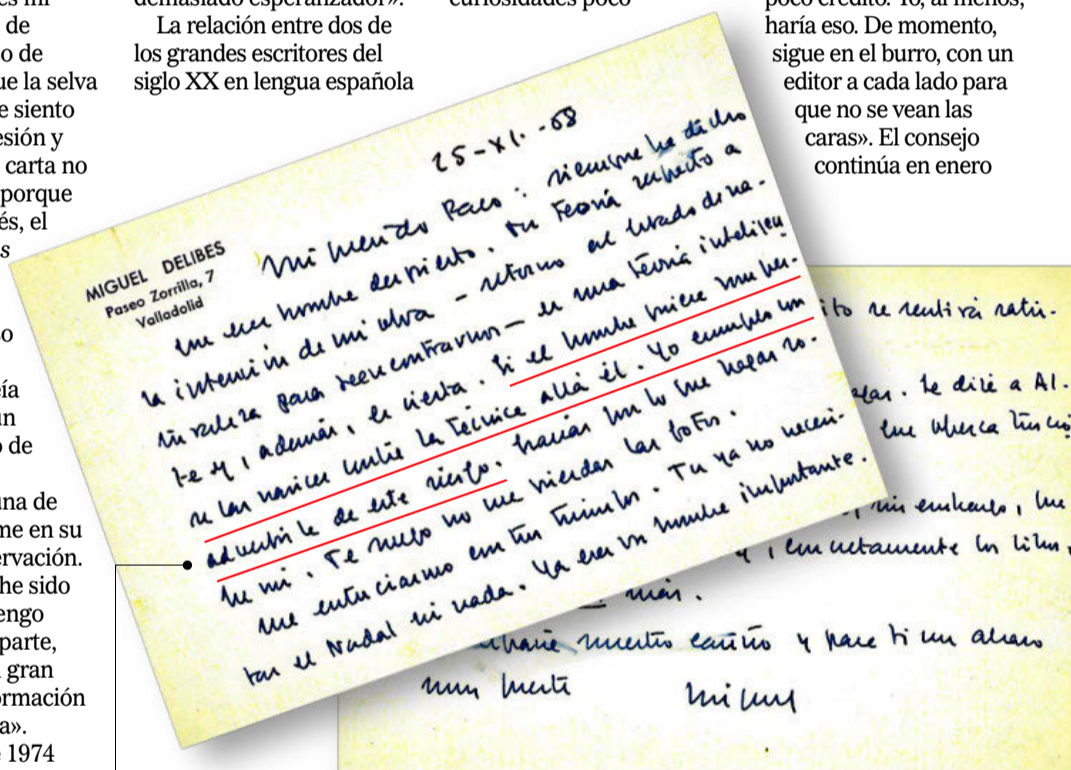 es mi
de
o de
ue la selva
e siento
esión y
carta no
porque
és, el
s
so
ía
un
o de
una de
me en su
ervación.
he sido
engo
parte,
gran
ormación
a».
1974
demasiado esperanzador».
La relación entre dos de
los grandes escritores del
siglo XX en lengua española
curiosidades poco
poco crédito. Yo, al menos,
haría eso. De momento,
sigue en el burro, con un
editor a cada lado para
que no se vean las
caras». El consejo
continúa en enero
MIGUEL DELIBES
Paseo Zorrilla, 7
Valladolid
25-XI-68
Mi querido Paco: siempre he dicho
que eres hombre despierto. Tu teoría respecto a
la intención de mi obra – retorno al librado de na-
turaleza para reencontrarnos – es una teoría inteligen
te y, además, es cierta. Si el hombre quiere romper-
se las narices contra la técnica allá él. Yo cumplo con
advertirle de este riesgo. Harías con lo que hagas so-
bre mí. Te ruego no me pierdas las fotos.
me entusiasmo con tus triunfos. Tú ya no necesi-
tas el Nadal ni nada. Ya eres un hombre importante.
ito se sentirá satis-
Le diré a Al-
que
sin embargo, que
y, concretamente los libros,
más.
nuestro cariño y para ti un abrazo
muy fuerte
Miguel